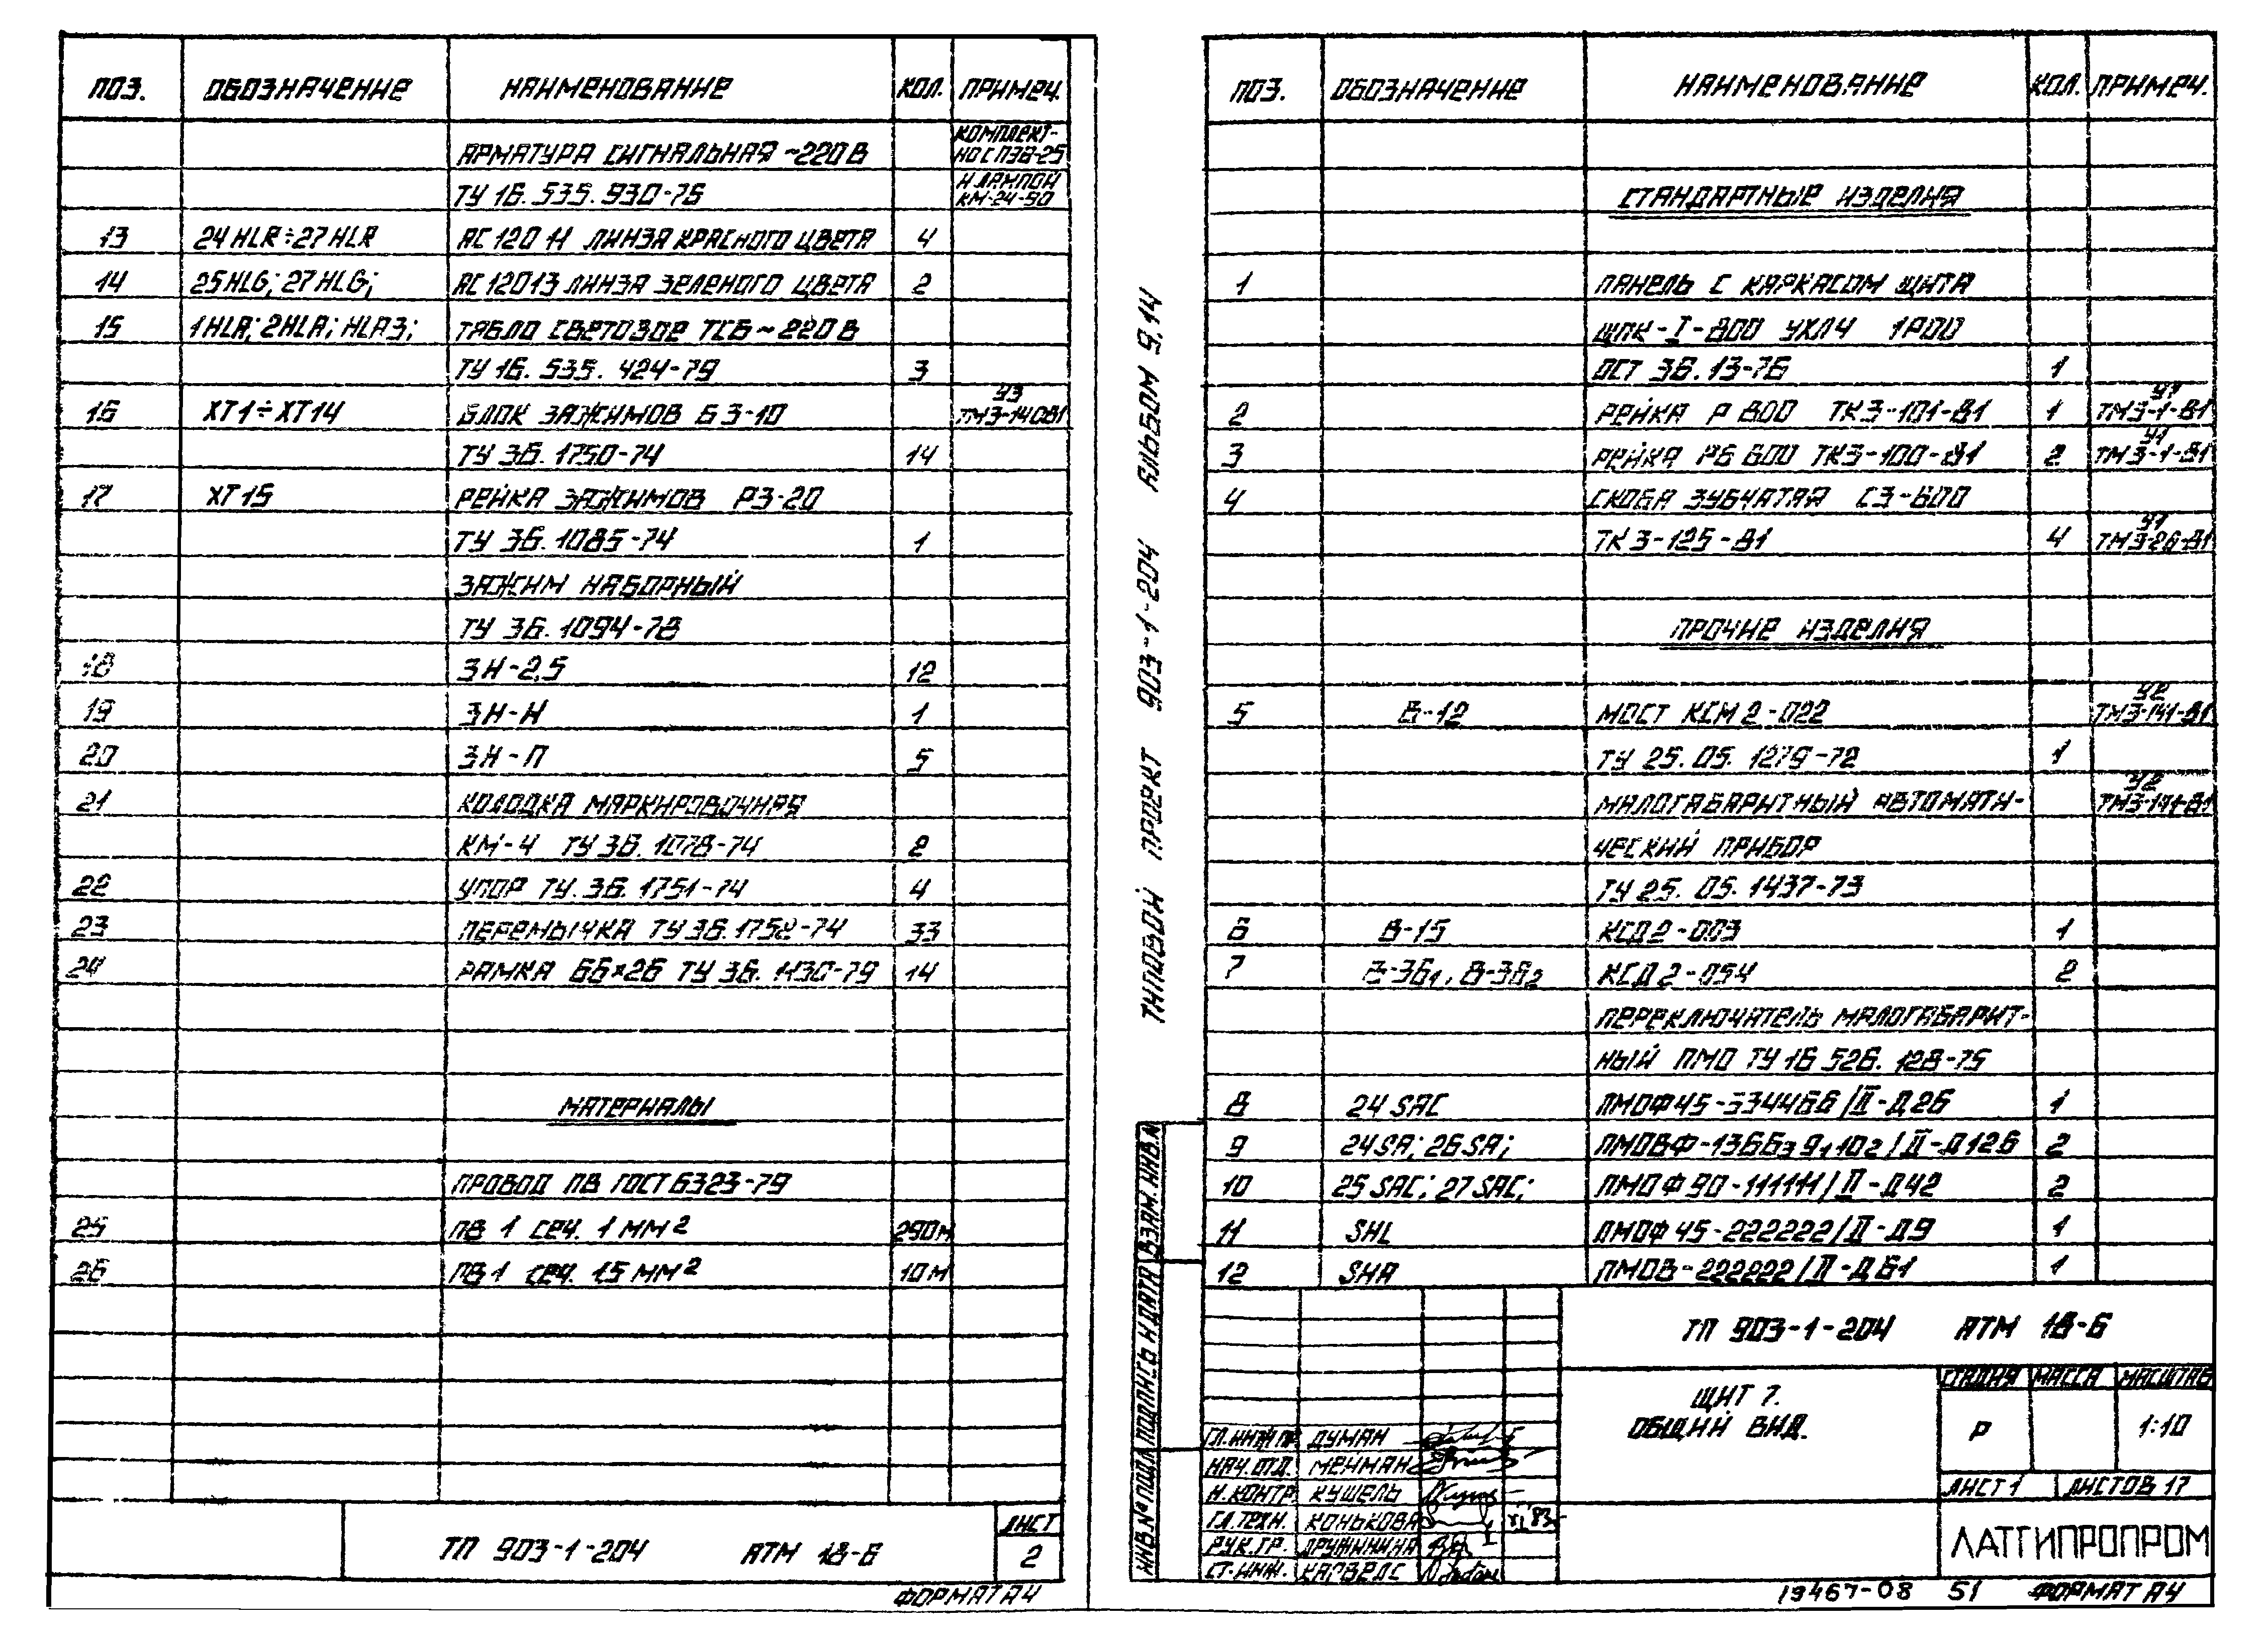 ПОЗ. ОБОЗНАЧЕНИЕ НАИМЕНОВАНИЕ КОЛ. ПРИМЕЧ.
АРМАТУРА СИГНАЛЬНАЯ ~220В КОМПЛЕКТ-
НО С ПЭВ-25
ТУ 16.535.930-76 И ЛАМПОЙ
КМ-24-90
13 24HLR÷27HLR АС 120 11 ЛИНЗА КРАСНОГО ЦВЕТА 4
14 25HLG; 27HLG; АС12013 ЛИНЗА ЗЕЛЕНОГО ЦВЕТА 2
15 1HLA; 2HLA; HLA3; ТАБЛО СВЕТОВОЕ ТСБ ~220В
ТУ 16.535.424-79 3
16 ХТ1÷ХТ14 БЛОК ЗАЖИМОВ БЗ-10 У3
ТМ3-14081
ТУ 36.1750-74 14
17 ХТ15 РЕЙКА ЗАЖИМОВ РЗ-20
ТУ 36.1085-74 1
ЗАЖИМ НАБОРНЫЙ
ТУ 36.1094-78
18 ЗН-2,5 12
19 ЗН-Н 1
20 ЗН-П 5
21 КОЛОДКА МАРКИРОВОЧНАЯ
КМ-4 ТУ 36.1078-74 2
22 УПОР ТУ.36.1751-74 4
23 ПЕРЕМЫЧКА ТУ 36.1752-74 33
24 РАМКА 66×26 ТУ 36.1130-79 14
МАТЕРИАЛЫ
ПРОВОД ПВ ГОСТ 6323-79
25 ПВ 1 СЕЧ. 1 ММ2 290М
26 ПВ 1 СЕЧ. 1.5 ММ2 10М
ТП 903-1-204 АТМ 18-6 ЛИСТ
2
ФОРМАТ А4
ТИПОВОЙ ПРОЕКТ 903-1-204 АЛЬБОМ 9.14
ИНВ.№ ПОДЛ. ПОДПИСЬ И ДАТА ВЗАМ.ИНВ.№
ПОЗ. ОБОЗНАЧЕНИЕ НАИМЕНОВАНИЕ КОЛ. ПРИМЕЧ.
СТАНДАРТНЫЕ ИЗДЕЛИЯ
1 ПАНЕЛЬ С КАРКАСОМ ЩИТА
ЩПК-I-800 УХЛ4 1Р00
ОСТ 36.13-76 1
2 РЕЙКА Р 800 ТК3-101-81 1 У1
ТМ3-1-81
3 РЕЙКА РБ 600 ТК3-100-81 2 У1
ТМ3-1-81
4 СКОБА ЗУБЧАТАЯ СЗ-600
ТК 3-125-81 4 У1
ТМ3-26-81
ПРОЧИЕ ИЗДЕЛИЯ
5 В-12 МОСТ КСМ 2-022 У2
ТМ3-141-81
ТУ 25.05.1279-72 1
МАЛОГАБАРИТНЫЙ АВТОМАТИ- У2
ТМ3-141-81
ЧЕСКИЙ ПРИБОР
ТУ 25.05.1437-73
6 В-15 КСД2-003 1
7 В-36₁, В-36₂ КСД2-054 2
ПЕРЕКЛЮЧАТЕЛЬ МАЛОГАБАРИТ-
НЫЙ ПМО ТУ 16 526.128-75
8 24 SAC ПМОФ45-334466/II-Д26 1
9 24SA; 26SA; ПМОВФ-1366₃9₁10₂/II-Д126 2
10 25 SAC; 27 SAC; ПМОФ90-111111/II-Д42 2
11 SHL ПМОФ45-222222/II-Д9 1
12 SHA ПМОВ-222222/II-Д61 1
ТП 903-1-204 АТМ 18-6
ЩИТ 7.
ОБЩИЙ ВИД.
СТАДИЯ МАССА МАСШТАБ
Р 1:10
ЛИСТ 1 ЛИСТОВ 17
ЛАТГИПРОПРОМ
ГЛ.ИНЖ ПР. ДУМАН
НАЧ.ОТД. МЕЙМАН
Н.КОНТР КУШЕЛЬ
ГЛ.ТЕХН. КОНЬКОВА XI 83
РУК.ГР. ДРУЖИНИНА
СТ.ИНЖ. КАРВЕЛС
19467-08 51 ФОРМАТ А4